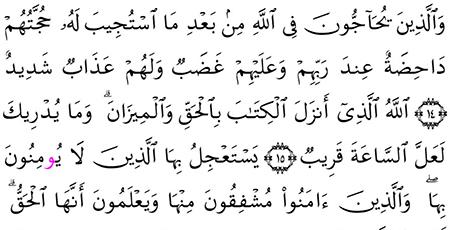 وَالَّذِينَ يُحَاجُّونَ فِى اللَّهِ مِنۢ بَعْدِ مَا اَسْتُجِيبَ لَهُۥ حُجَّتُهُمْ
دَاحِضَةٌ عِندَ رَبِّهِمْ وَعَلَيْهِمْ غَضَبٌ وَلَهُمْ عَذَابٌ شَدِيدٌ
۝١٤ اَللَّهُ الَّذِىٓ أَنزَلَ الْكِتَٰبَ بِالْحَقِّ وَالْمِيزَانَۗ وَمَا يُدْرِيكَ
لَعَلَّ السَّاعَةَ قَرِيبٌ ۝١٥ يَسْتَعْجِلُ بِهَا الَّذِينَ لَا يُومِنُونَ
بِهَاۖ وَالَّذِينَ ءَامَنُوا۟ مُشْفِقُونَ مِنْهَا وَيَعْلَمُونَ أَنَّهَا الْحَقُّۗ